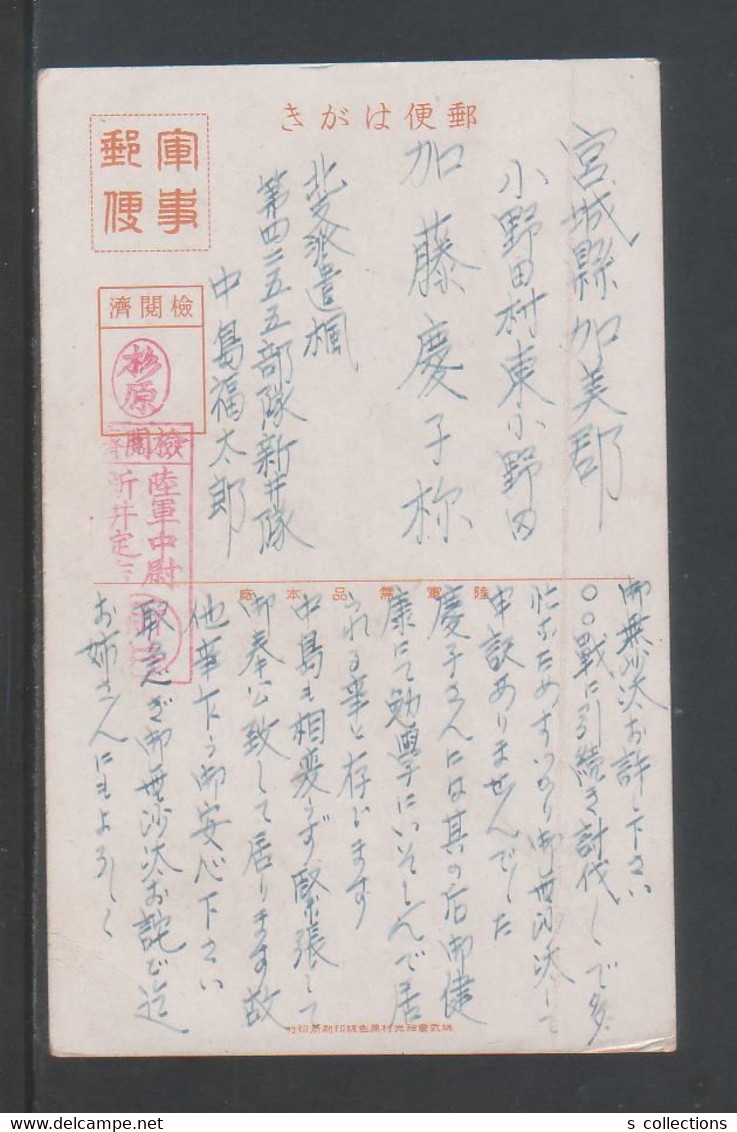 きがは便郵
軍事
郵便
宮城縣加美郡
小野田村東小野田
加藤慶子様
北支派遣楓
第四二五五部隊新井隊
中島福太郎
濟閲檢
杉原
濟閲檢
陸軍中尉
新井定
陸軍 品本
御無沙汰お許し下さい
〇〇戰に引続き討伐しで多
忙なためすっかり御無沙汰して
申訳ありませんでした
慶子さんには其の后御健
康にて勉學にいそしんで居
られる事と存じます
中島も相変らず緊張して
御奉公致して居ります故
他事下ら御安心下さい
取急ぎ御無沙汰お詫び迄
お姉さんにもよろしく
s collections